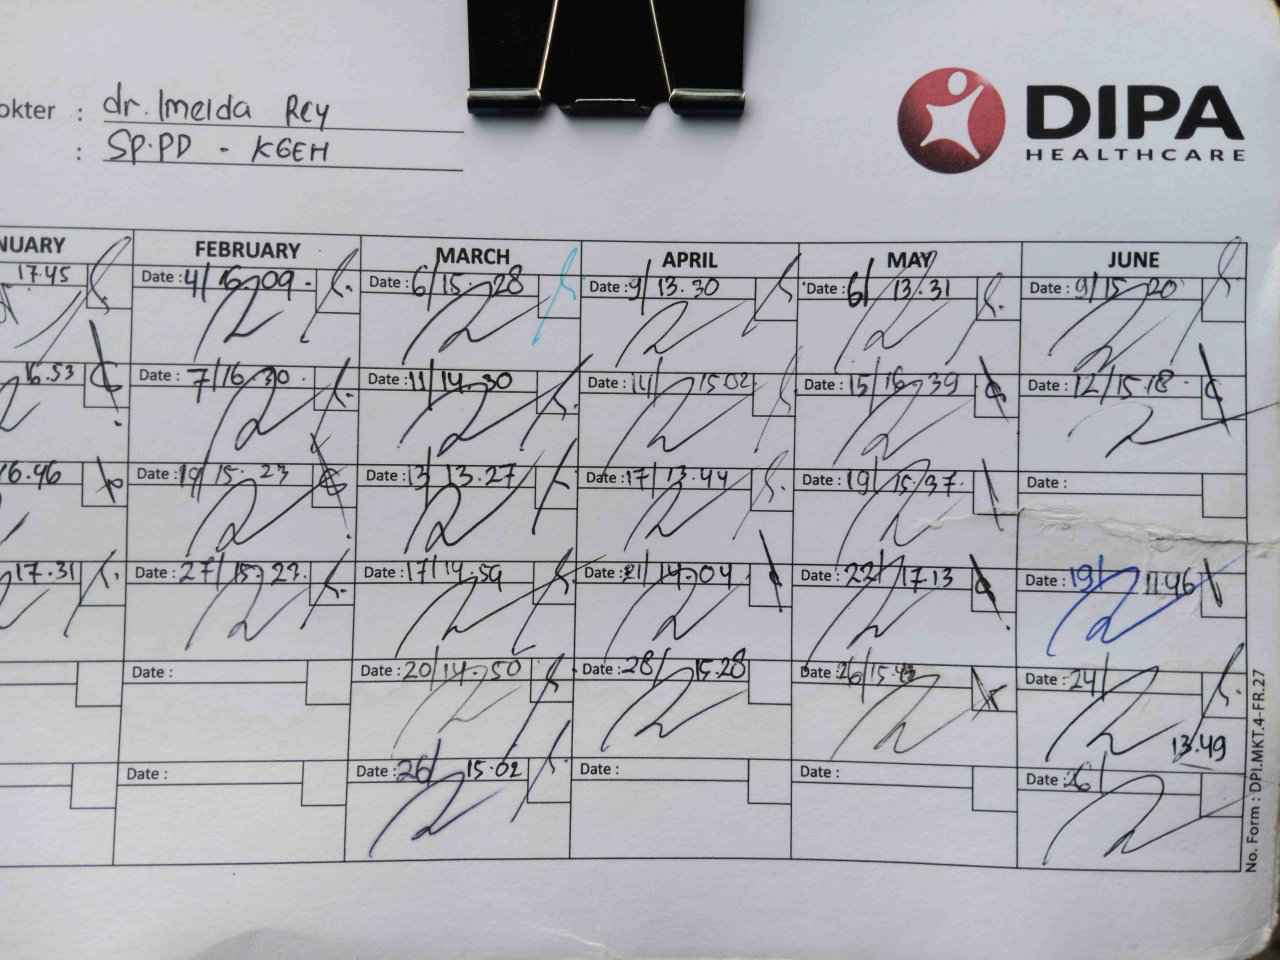 DIPA
HEALTHCARE
okter : dr. Imelda Rey
: SP.PD - KGEH
NUARY FEBRUARY MARCH APRIL MAY JUNE
17.45 Date : 4/ 16.09 Date : 6/ 15.28 Date : 9/ 13.30 Date : 6/ 13.31 Date : 9/ 15.20
16.53 Date : 7/ 16.30 Date : 11/ 14.30 Date : 14/ 15.02 Date : 15/ 16.39 Date : 12/ 15.18
16.46 Date : 19/ 15.23 Date : 13/ 13.27 Date : 17/ 13.44 Date : 19/ 15.37 Date :
17.31 Date : 27/ Date : 17/ 14.59 Date : 21/ 14.04 Date : 22/ 17.13 Date : 19/ 11.46
Date : Date : 20/ 14.50 Date : 28/ 15.28 Date : 26/ Date : 24/
13.49
Date : Date : 26/ 15.02 Date : Date : Date : 26/
No. Form : DPI.MKT.4-FR.27